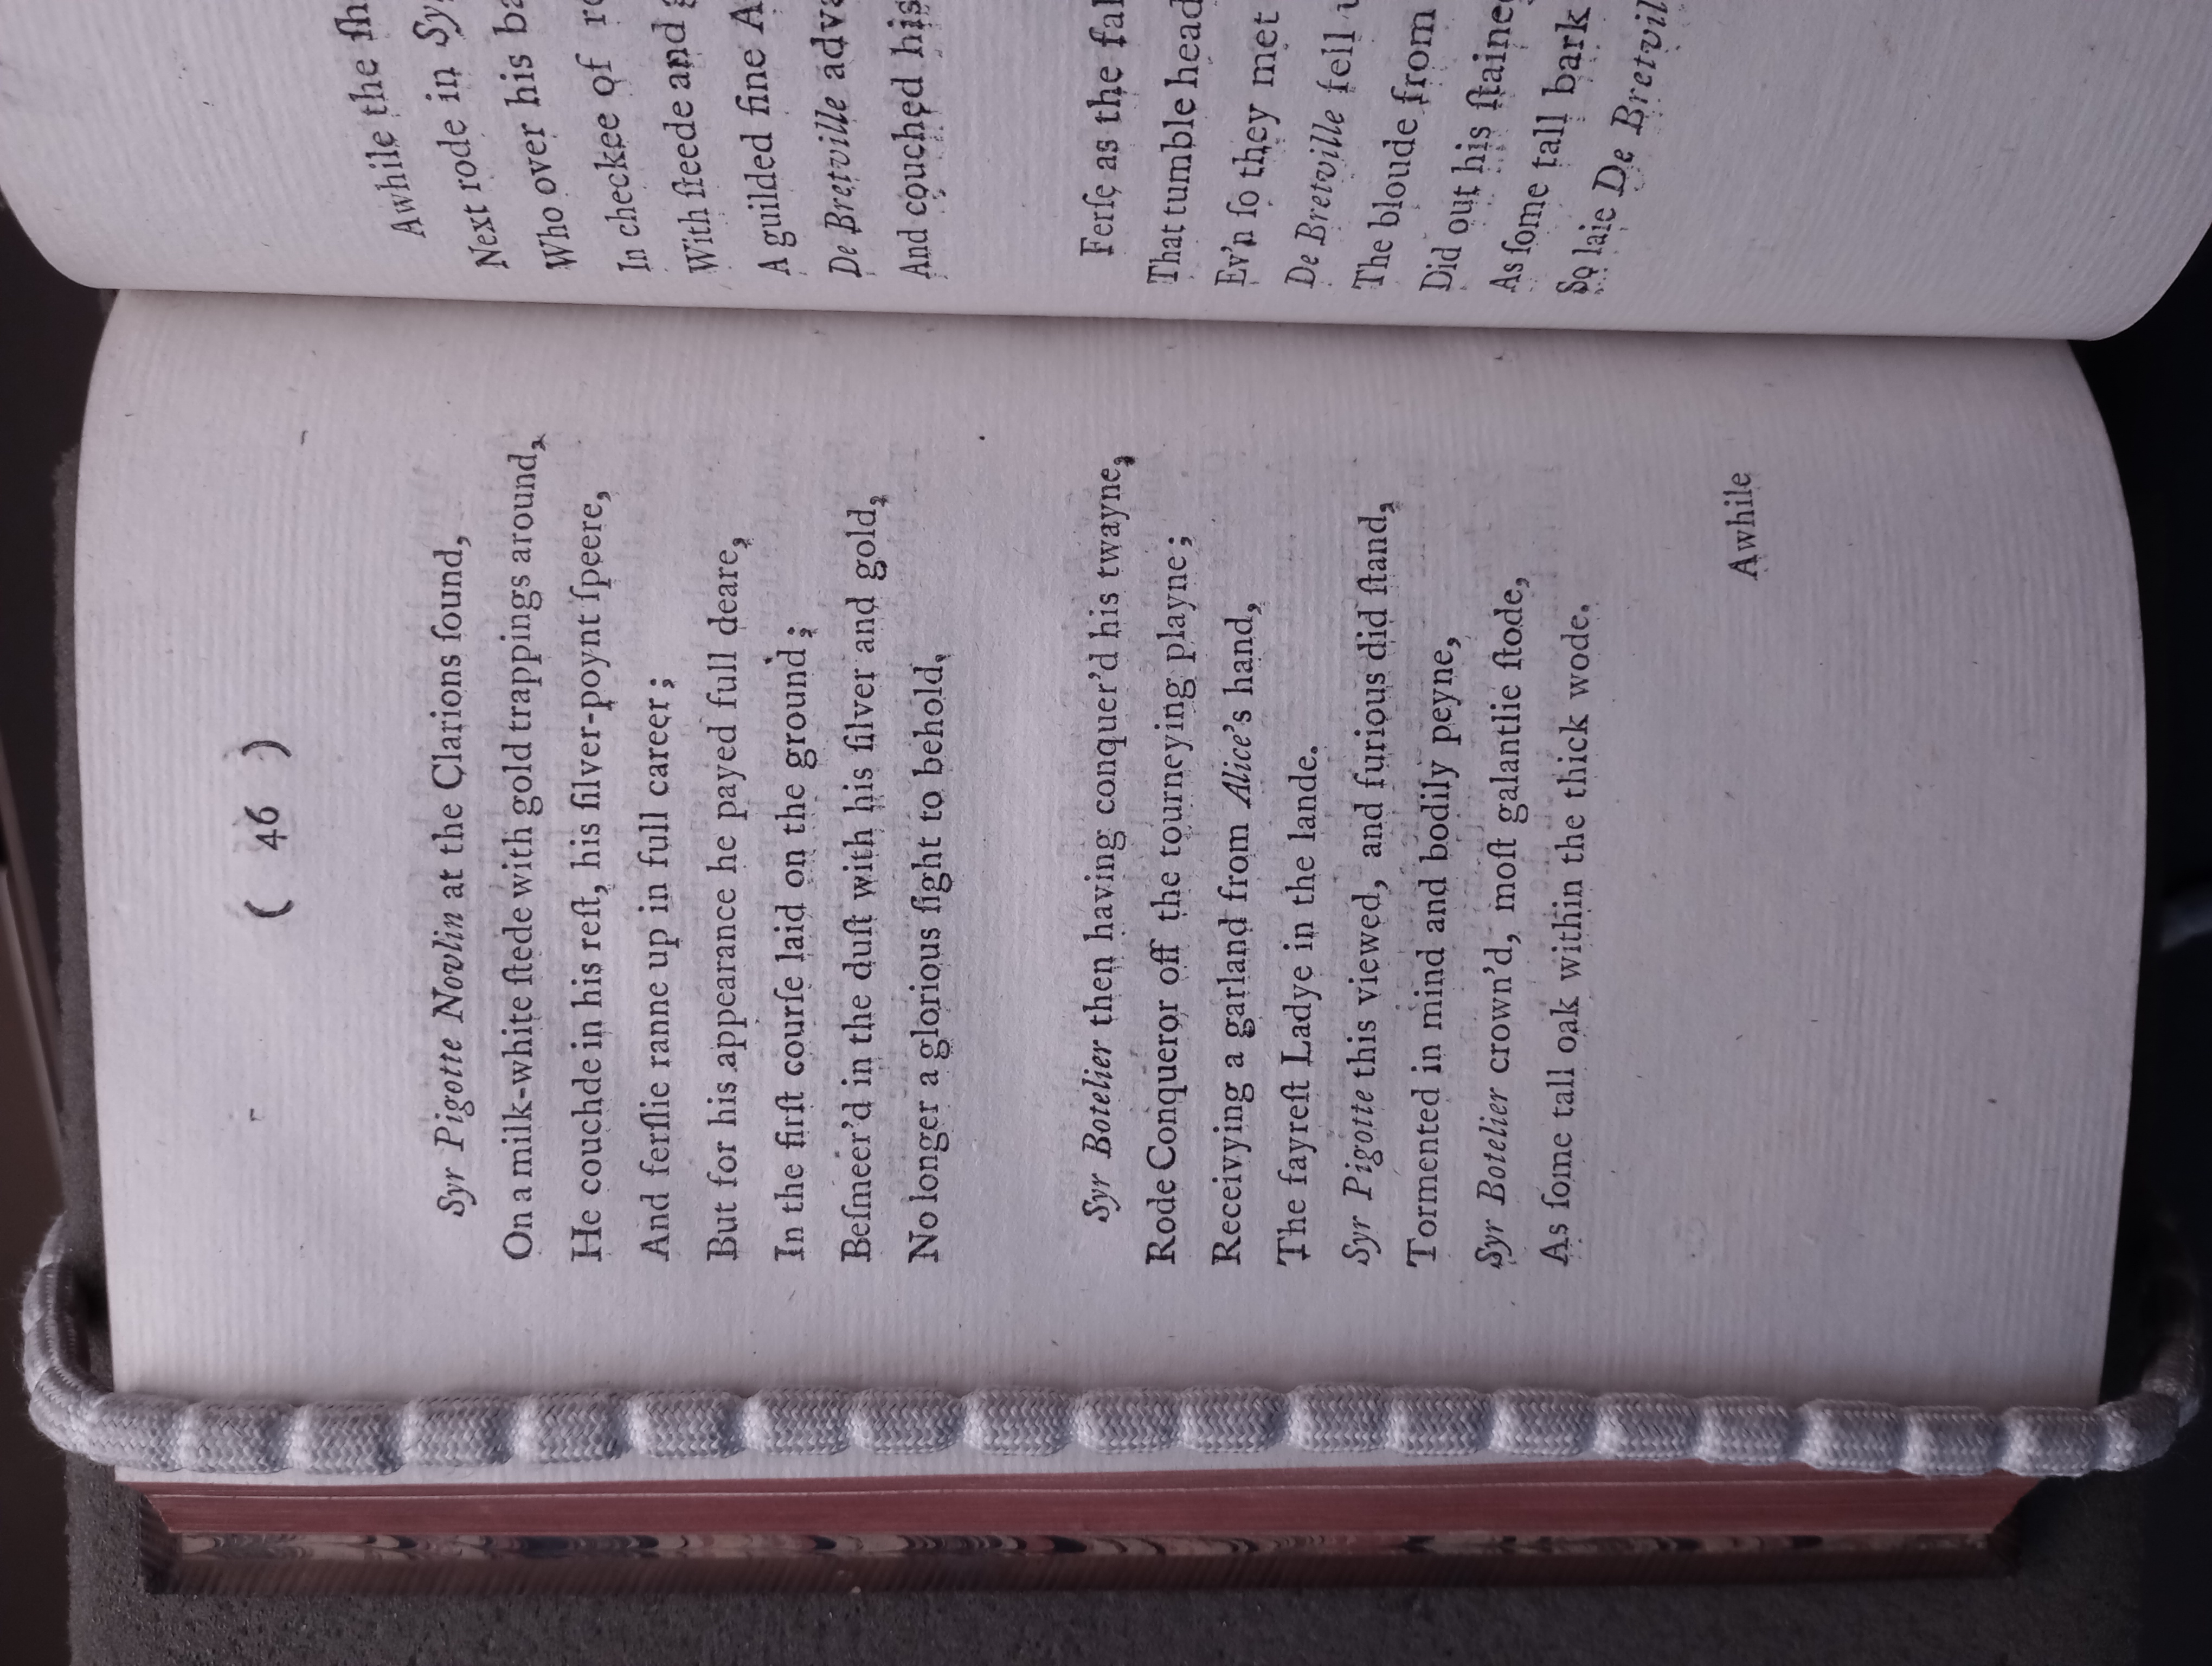 ( 46 )
Syr Pigotte Novlin at the Clarions ſound,
On a milk-white ſtede with gold trappings around,
He couchde in his reſt, his ſilver-poynt ſpeere,
And ferſlie ranne up in full career;
But for his appearance he payed full deare,
In the firſt courſe laid on the ground;
Beſmeer'd in the duſt with his ſilver and gold,
No longer a glorious ſight to behold,
Syr Botelier then having conquer'd his twayne,
Rode Conqueror off the tourneying playne;
Receivying a garland from Alice's hand,
The fayreſt Ladye in the lande.
Syr Pigotte this viewed, and furious did ſtand,
Tormented in mind and bodily peyne,
Syr Botelier crown'd, moſt galantlie ſtode,
As ſome tall oak within the thick wode.
Awhile
Awhile the
Next rode in
Who over his
In checkee of
With ſteede and
A guilded fine
De Bretville
And couched his
Ferſe as the
That tumble
Ev'n ſo they met
De Bretville fell
The bloude from
Did out his
As ſome tall bark
So laie De